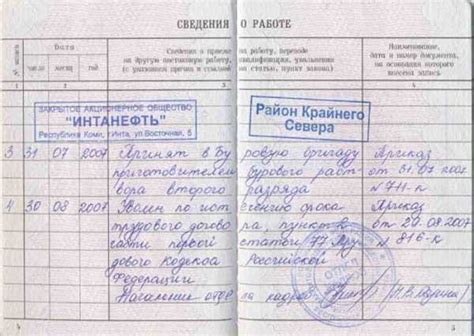 СВЕДЕНИЯ О РАБОТЕ
№ записи
Дата
число
месяц
год
Сведения о приеме на работу, переводе
на другую постоянную работу, квалификации, увольнении
(с указанием причин и ссылкой на статью, пункт закона)
Наименование,
дата и номер документа,
на основании которого
внесена запись
1
2
3
4
ЗАКРЫТОЕ АКЦИОНЕРНОЕ ОБЩЕСТВО
"ИНТАНЕФТЬ"
Республика Коми, г.Инта, ул.Восточная, 5
Район Крайнего
Севера
3 31 07 2007 Принят в буровую бригаду Приказ
приготовителем бурового раст от 31.07.2007
вора второго разряда № 711-к
4 30 08 2007 Уволен по истечению срока Приказ
трудового договора, пункт от 29.08.2007
части первой статьи 77 Тру № 816-к
дового кодекса Российской
Федерации
Начальник отдела кадров
4
5